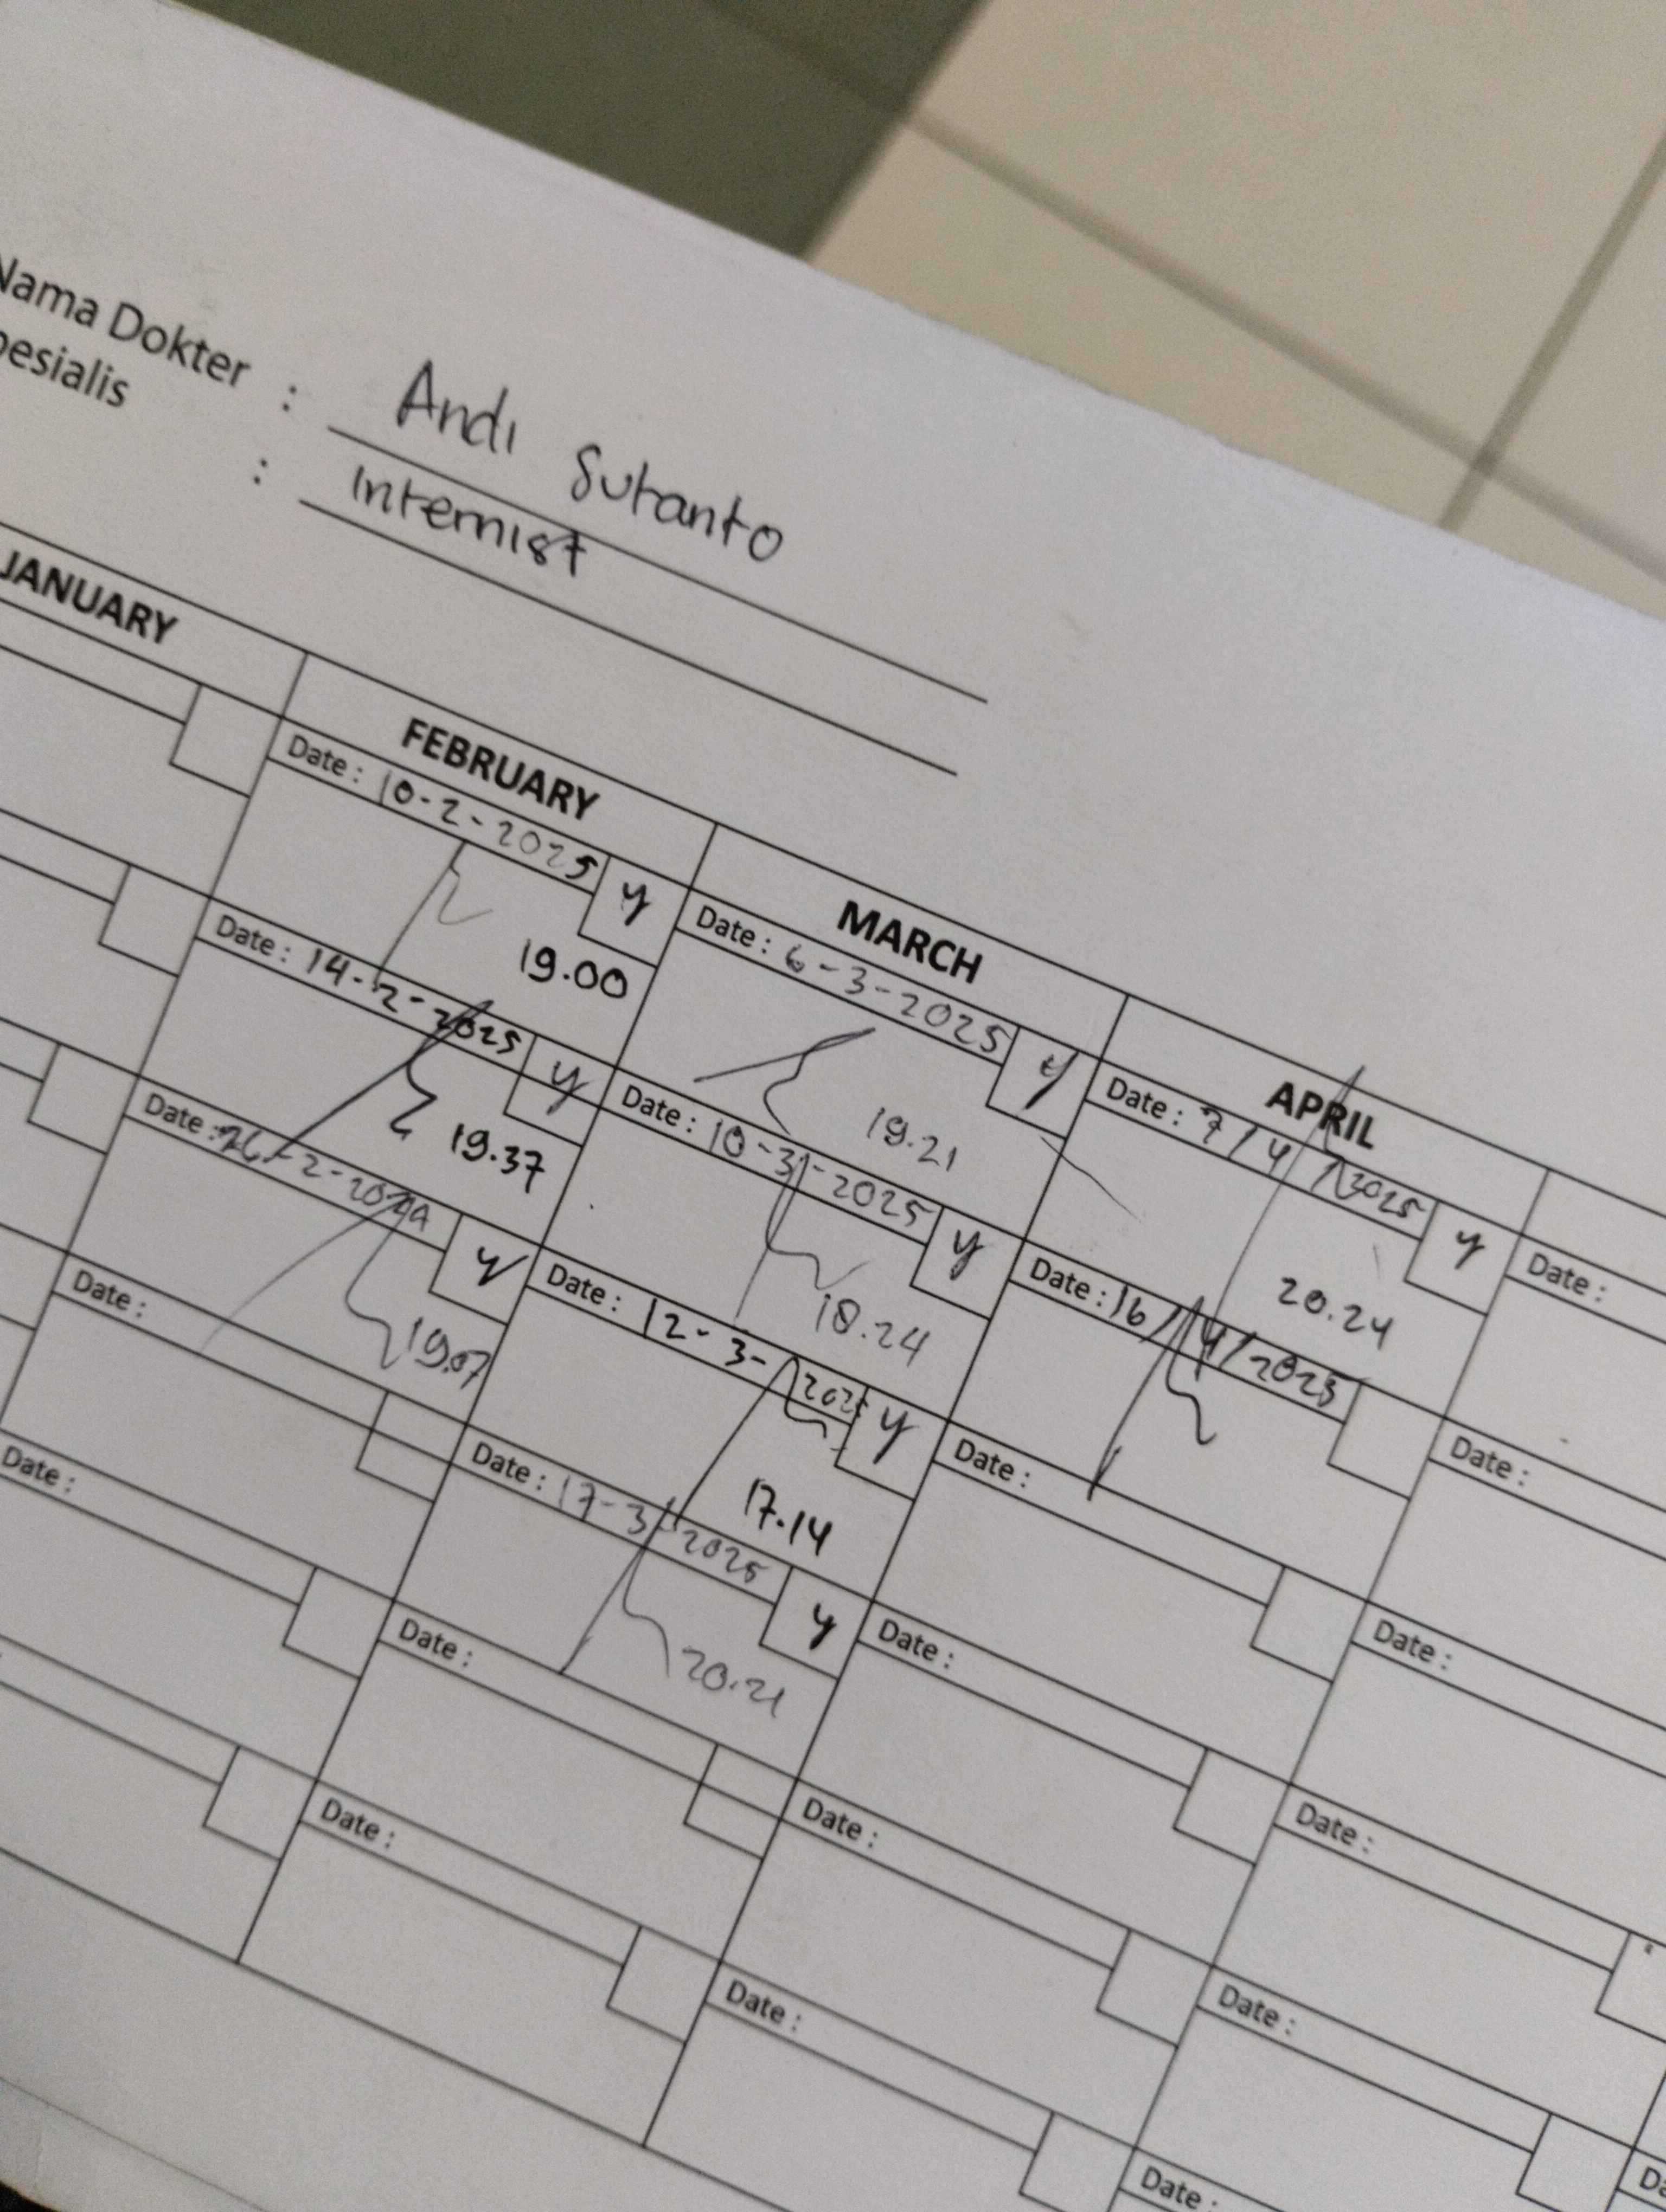 Nama Dokter : Andi Sutanto
pesialis : Internist
JANUARY
FEBRUARY
MARCH
APRIL
Date : 10-2-2025 y
19.00
Date : 14-2-2025 y
19.37
Date : 26-2-20 y
19.07
Date :
Date :
Date : 6-3-2025 y
19.21
Date : 10-3-2025 y
18.24
Date : 12-3-2025 y
17.14
Date : 17-3-2025 y
20.21
Date :
Date :
Date : 7/4/2025 y
20.24
Date : 16/4/2025
Date :
Date :
Date :
Date :
Date :
Date :
Date :
Date :
Date :
Date :
Da